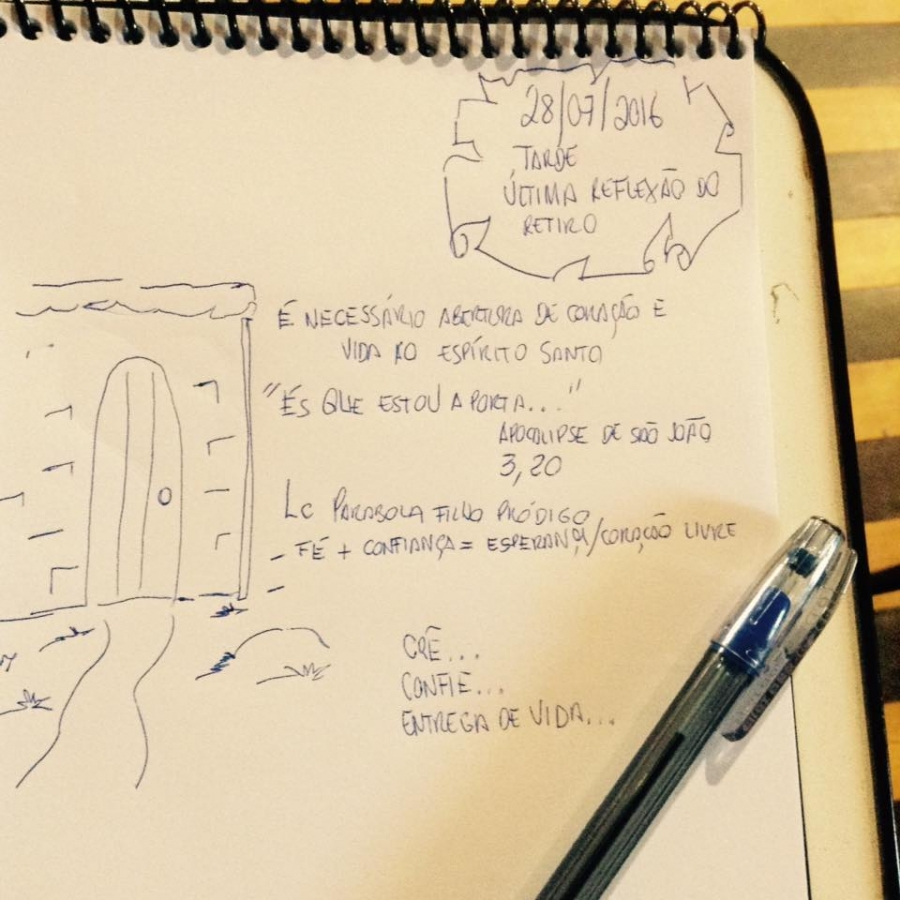 28/07/2016
TARDE
ÚLTIMA REFLEXÃO DO
RETIRO
É NECESSÁRIO ABERTURA DE CORAÇÃO E
VIDA AO ESPÍRITO SANTO
"ÉS QUE ESTOU A PORTA..."
APOCALIPSE DE SÃO JOÃO
3,20
Lc PARABOLA FILHO PRÓDIGO
FÉ + CONFIANÇA = ESPERANÇA/CORAÇÃO LIVRE
CRÊ...
CONFIE...
ENTREGA DE VIDA...